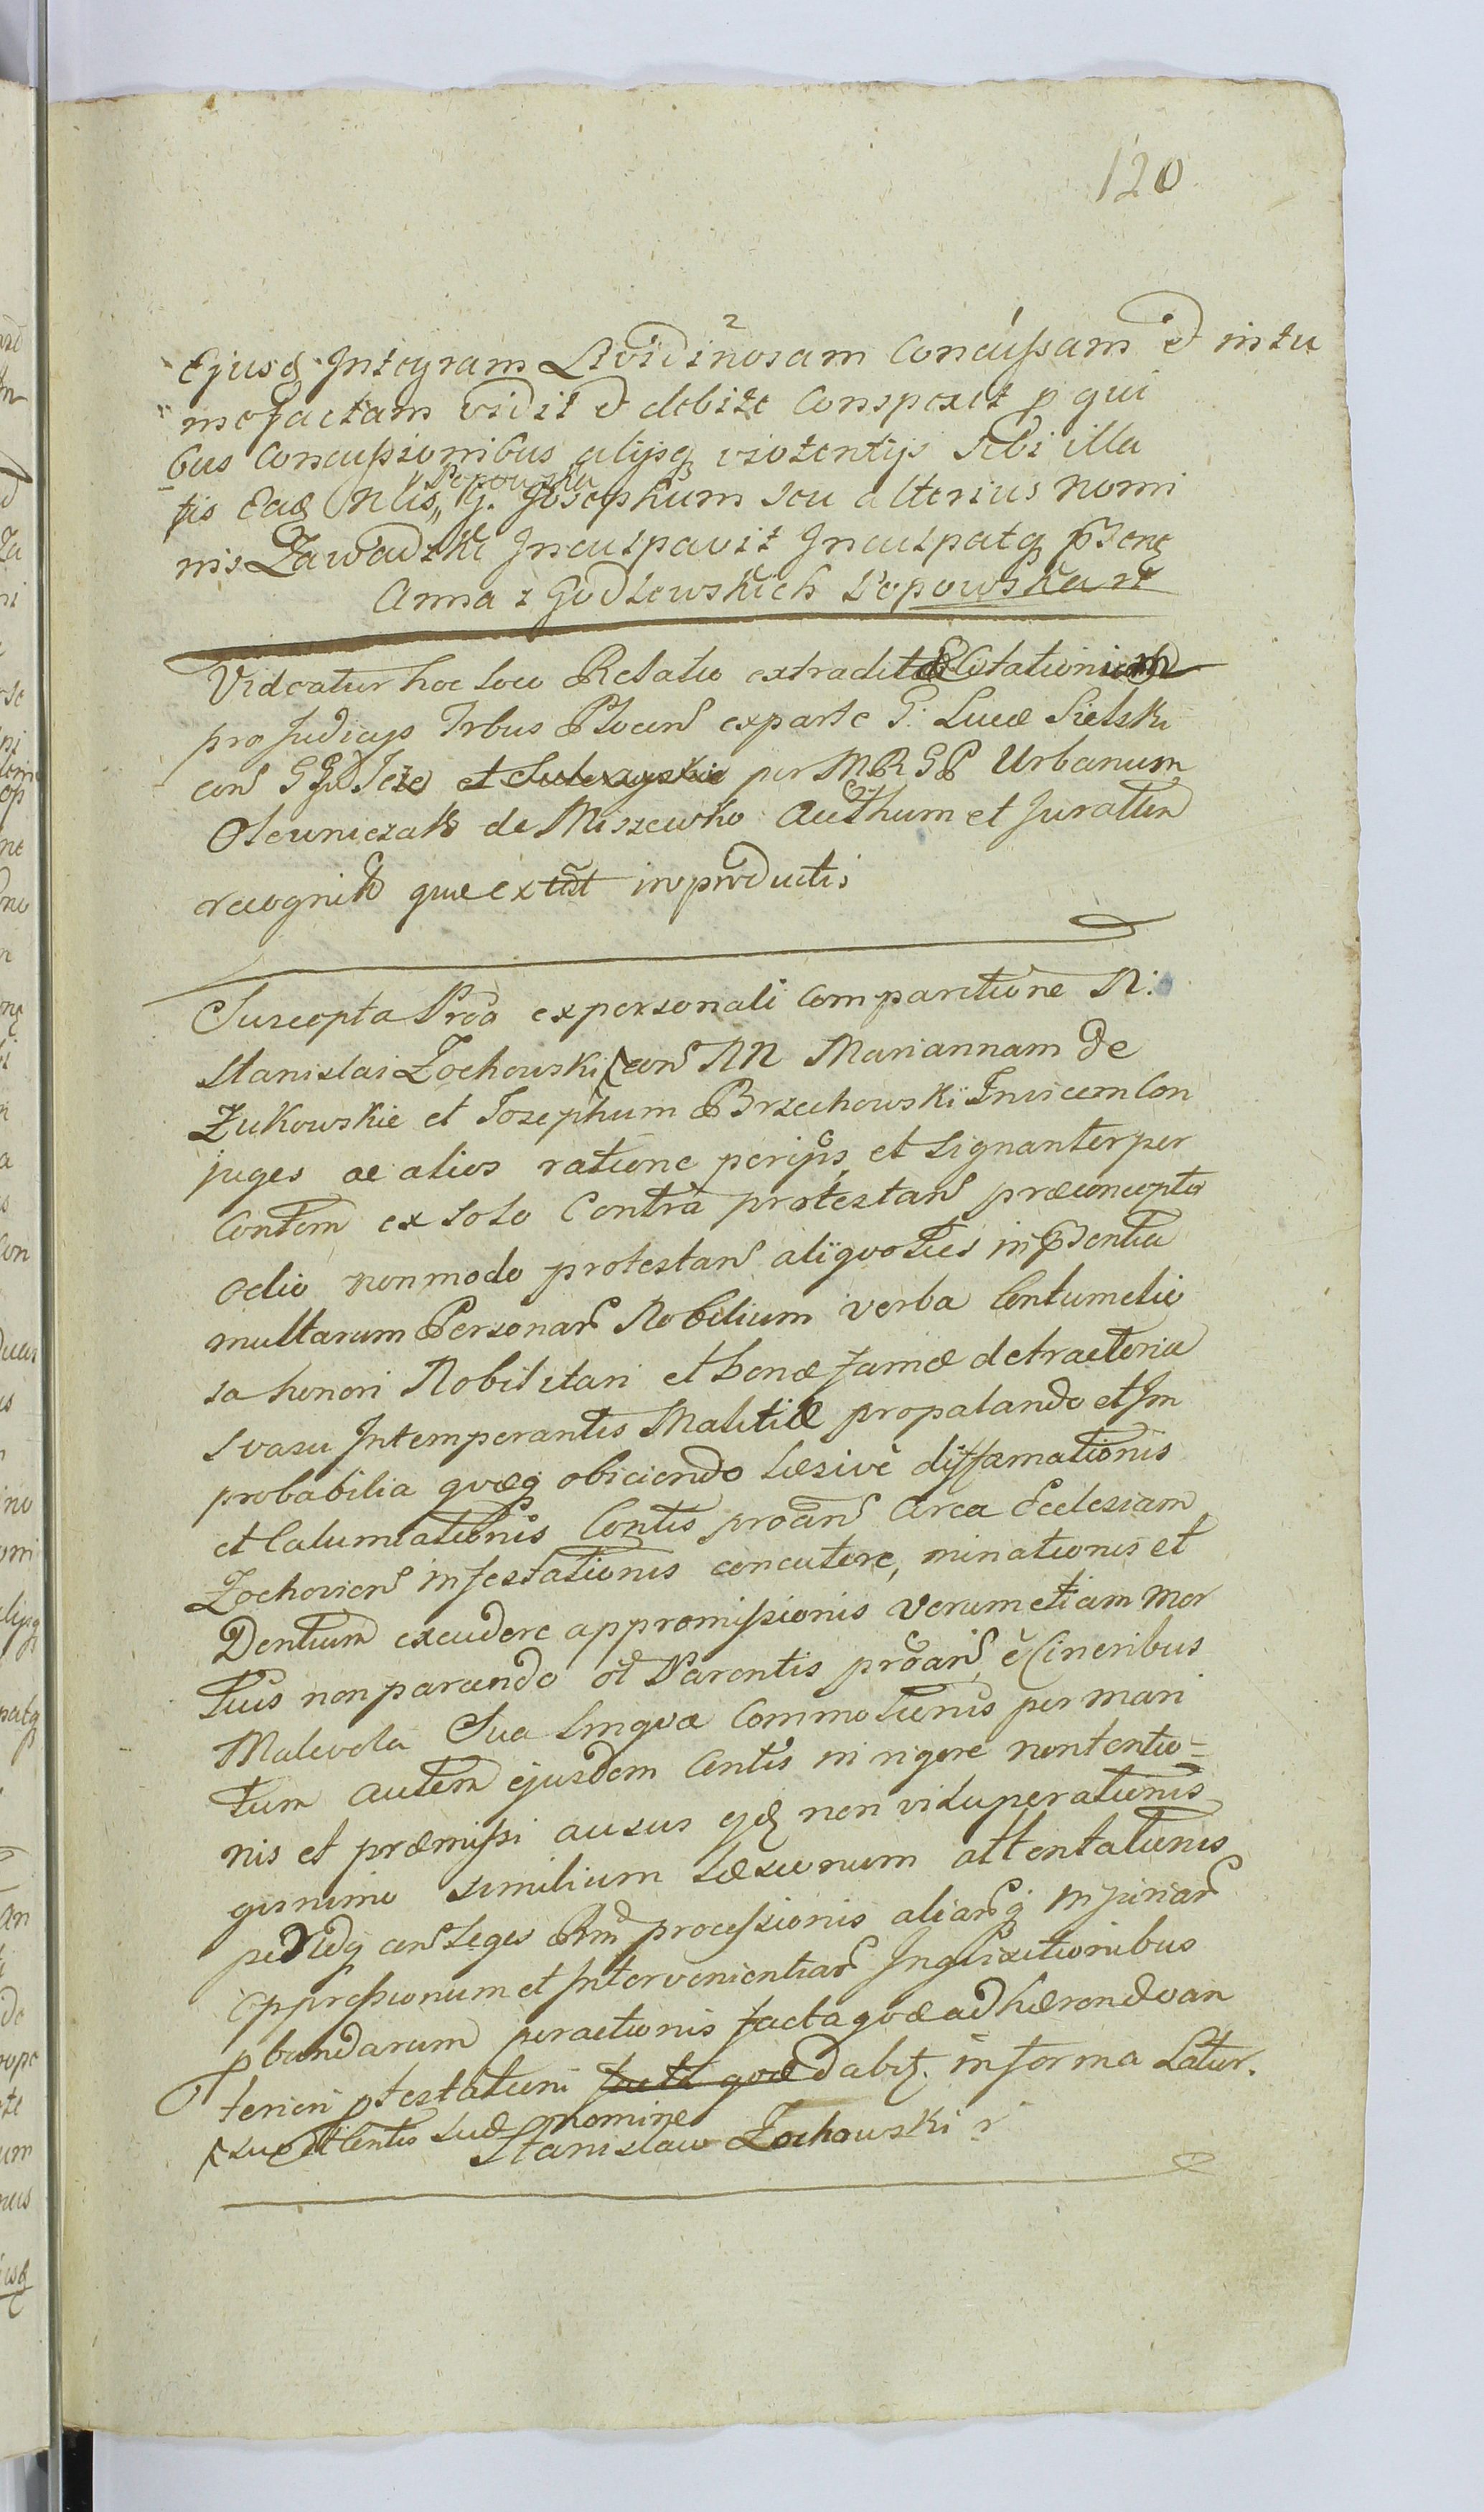 120
2
Ejusq Integram Lividinosam Concussam et intu
mefactam vidit et debite Conspexit p qui
bus Concussionibus alijsq violentijs sibi illa
tis Eadē Nlis,, Popowska G. Josephum seu alterius nomi
nis Zawadzki Inculpavit Inculpatq pñens
Anna z Godlewskich Popowska
Videatur hoc loco Relatio extraditæ Citationis
pro Judicijs Trbus Plocens ex parte G. Lucæ Sielski
con GG Jeże et Sulerzyskie per MRGP Urbanum
Olewniczak de Miszewko Authum et Juratum
recognit quæ extat in productis
Suscepta Prõa ex personali Comparitione N:
Stanislai Zochowski con NN Mariannam de
Żukowskie et Josephum Brzechowski Invicem Con
juges ac alios ratione perijs et signanter per
Contem ex solo Contra protestans præconcepto
odio non modo protestans aliquoties in pñsentia
multarum Personar Nobilium verba Contumelio
sa honori Nobilitari et bonæ famæ detractoria
svasu Intemperantis Malitiæ propalando et Im
probabilia quæq obiciendo læsivè diffamationis
et Calumiationis Contis proans Circa Ecclesiam
Zochoviens infestationis concutere, minationis et
Dentium excudere appromissionis verum etiam Mor
tuis non parcendo Parentis proans è Cineribus
Malevola Sua lingva Commotionis per mari
tum autem ejusdem Contis in rigore nontentio=
nis et præmissi ausus non vituperationis
similium læsionum attentationis
cons Leges processionis aliarq injuriar
oppressionum et Intervenientiar Inquisitionibus
pbandarum peractionis facta quæ adhærendo an
teriori ptestationi facta quæ dabit. in forma Latior.
nomine
Stanislaw Zochowski